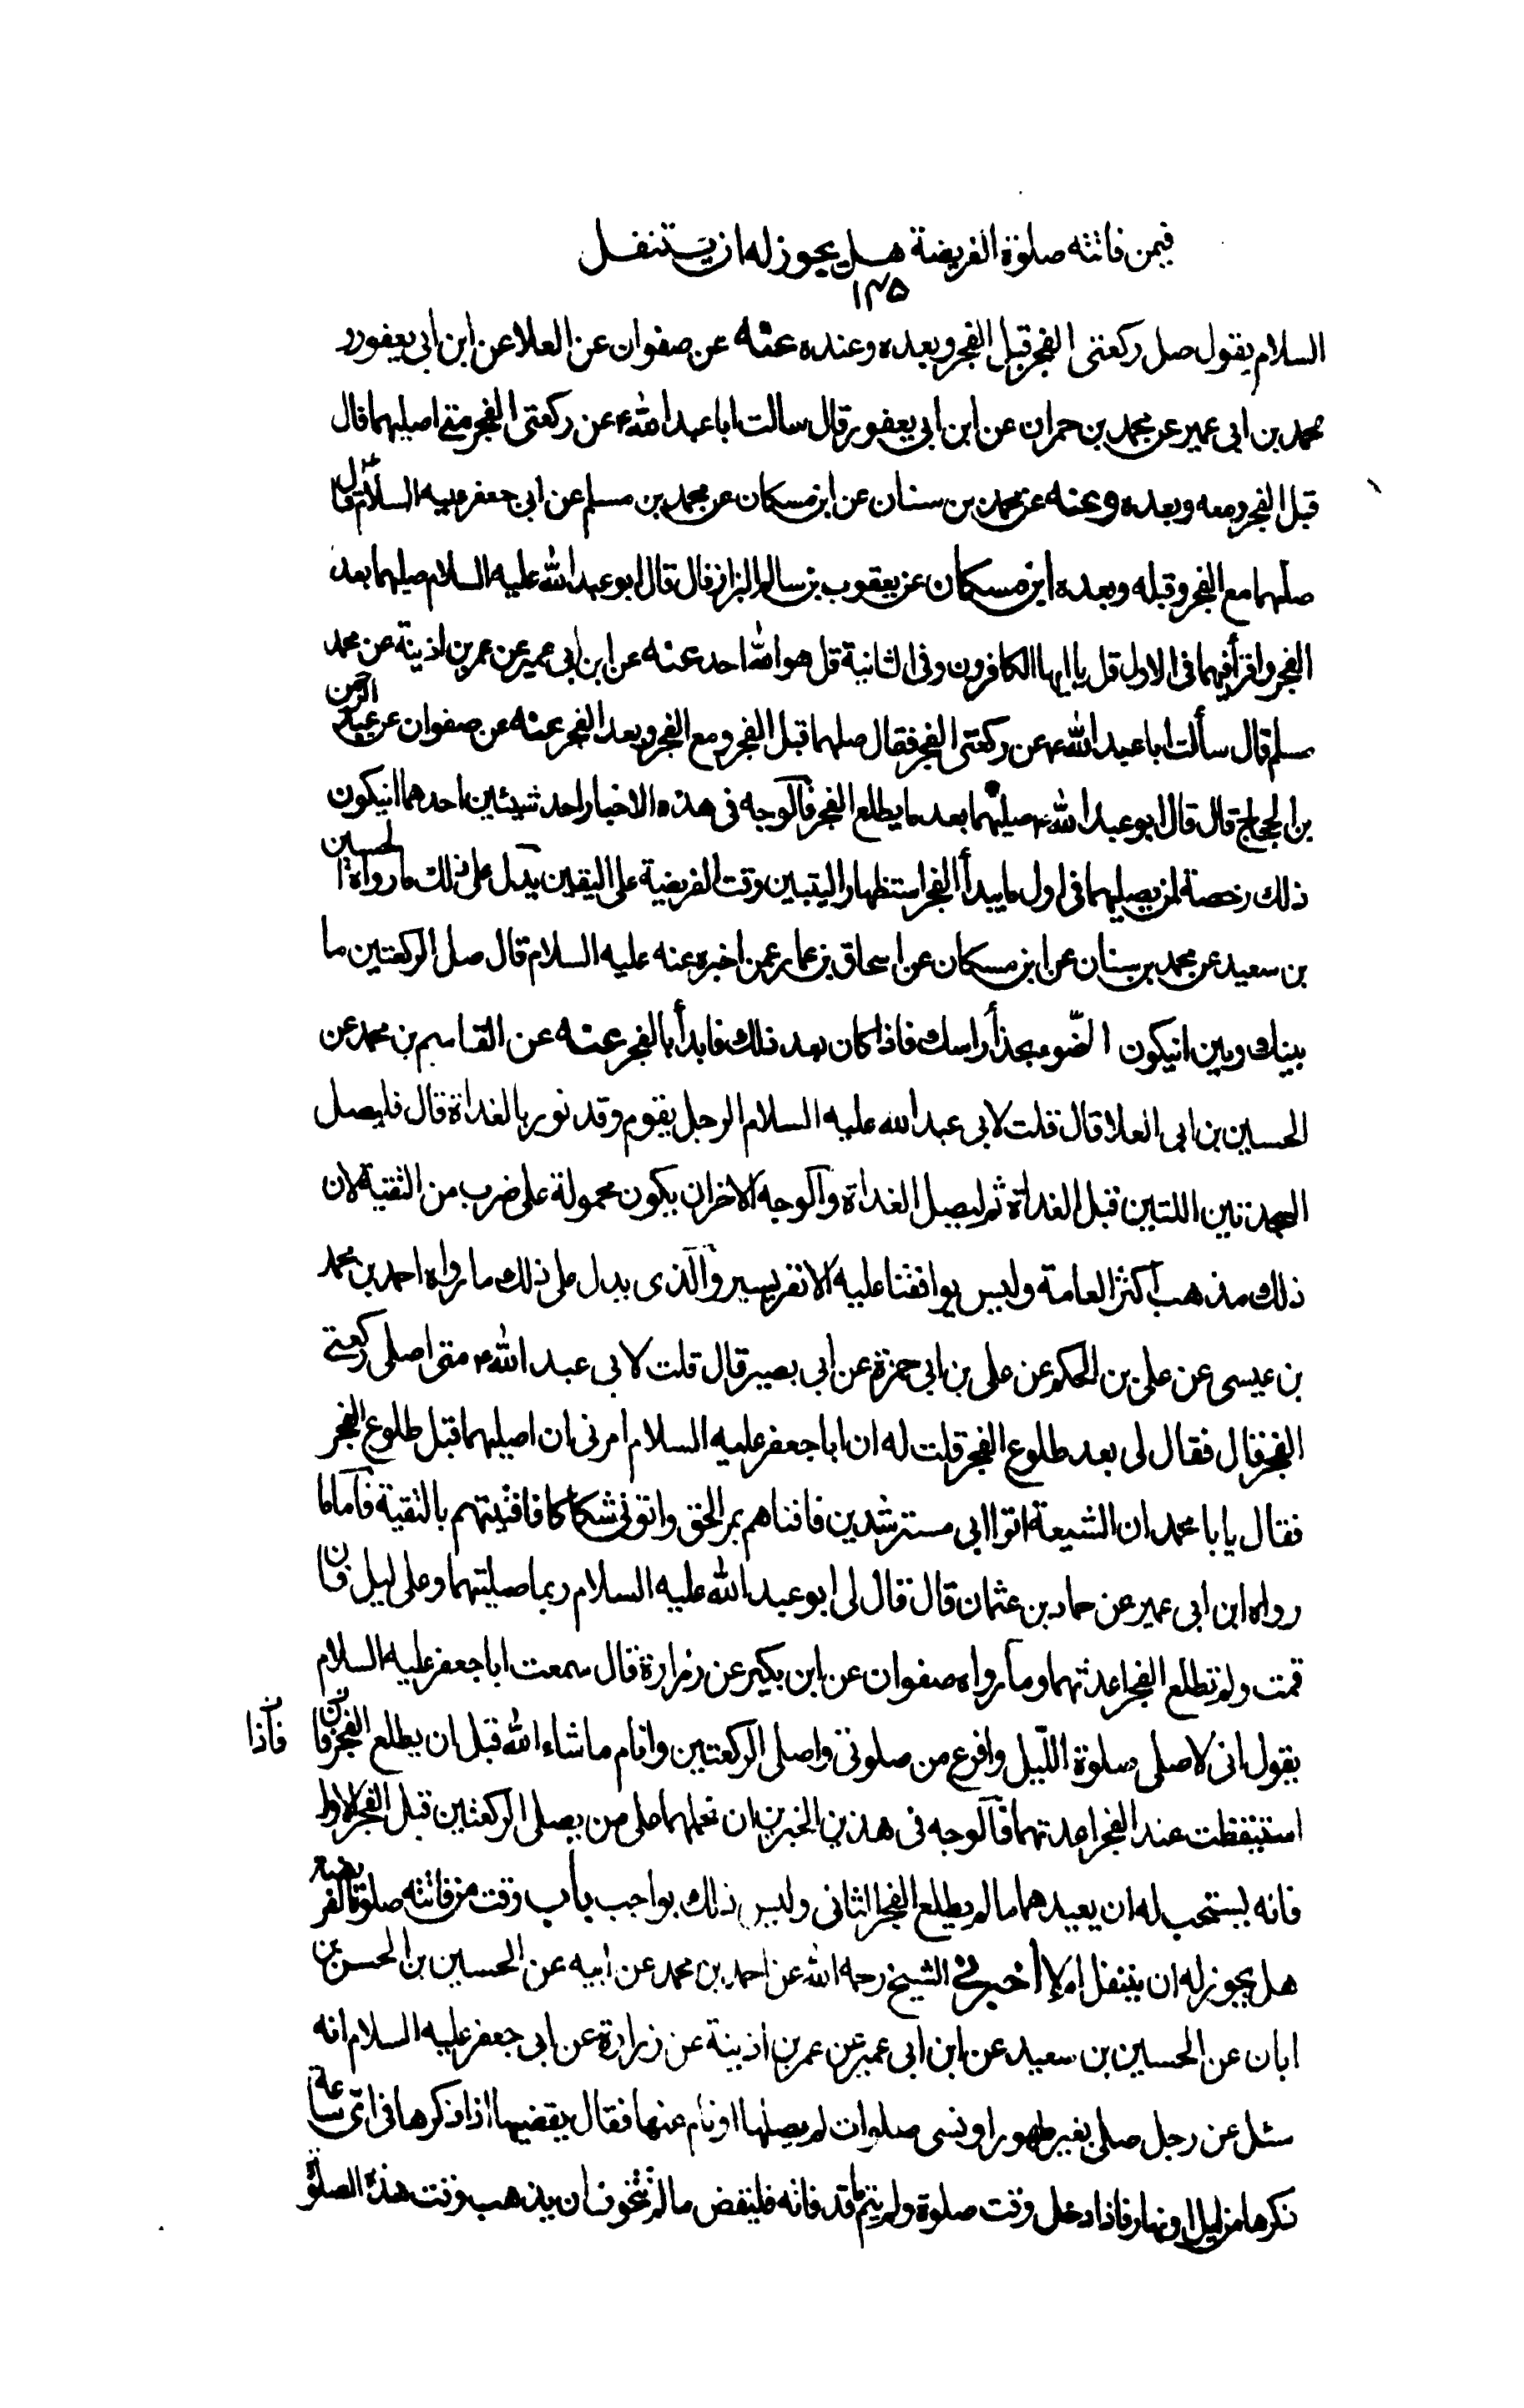 فيمن فاتته صلوة الفريضة هل يجوز له ان يتنفل
۱۴۵
السلام يقول صل ركعتى الفجر قبل الفجر وبعده وعنده عنه عن صفوان عن العلا عن ابن ابى يعفور
محمد بن ابى عمير عن محمد بن حمران عن ابن ابى يعفور قال سالت ابا عبد الله ع عن ركعتى الفجر متى اصليهما قال
قبل الفجر ومعه وبعده وعنه عن محمد بن سنان عن ابن مسكان عن محمد بن مسلم عن ابى جعفر عليه السلام قال
صلهما مع الفجر وقبله وبعده ابن مسكان عن يعقوب بن سالم البزاز قال قال ابو عبد الله عليه السلام صليهما بعد
الفجر واقرأ فيهما فى الاولى قل يا ايها الكافرون وفى الثانية قل هو الله احد عنه عن ابن ابى عمير عن عمر بن اذينة عن محمد
مسلم قال سألت ابا عبد الله ع عن ركعتى الفجر فقال صلهما قبل الفجر ومع الفجر وبعد الفجر عنه عن صفوان عن عبد الرحمن
بن الحجاج قال قال ابو عبد الله ع صليهما بعد ما يطلع الفجر فالوجه فى هذه الاخبار احد شيئين احدهما انيكون
ذلك رخصة لمن يصليهما فى اول ما يبدأ الفجر استظهارا ليتبين وقت الفريضة على اليقين يدل على ذلك ما رواه الحسين
بن سعيد عن محمد بن سنان عن ابن مسكان عن اسحاق بن عمار عمن اخبره عنه عليه السلام قال صل الركعتين ما
بينك وبين انيكون الضوء بحذا راسك فاذا كان بعد ذلك فابدأ بالفجر عنه عن القاسم بن محمد عن
الحسين بن ابى العلا قال قلت لابى عبد الله عليه السلام الرجل يقوم وقد نور بالغداة قال فليصل
السجدتين اللتين قبل الغداة ثم ليصل الغداة والوجه الاخر ان يكون محمولة على ضرب من التقية لان
ذلك مذهب اكثر العامة وليس يوافقنا عليه الا نفر يسير والذى يدل على ذلك ما رواه احمد بن محمد
بن عيسى عن على بن الحكم عن على بن ابى حمزة عن ابى بصير قال قلت لابى عبد الله ع متى اصلى ركعتى
الفجر قال فقال لى بعد طلوع الفجر قلت له ان ابا جعفر عليه السلام امرنى ان اصليهما قبل طلوع الفجر
فقال يا با محمد ان الشيعة اتوا ابى مسترشدين فافتاهم بمر الحق واتونى شكاكا فافتيتهم بالتقية فاما ما
رواه ابن ابى عمير عن حماد بن عثمان قال قال لى ابو عبد الله عليه السلام ربما صليتهما وعلى ليل فان
قمت ولم تطلع الفجر اعدتهما وما رواه صفوان عن ابن بكير عن زرارة قال سمعت ابا جعفر عليه السلام
يقول انى لاصلى صلوة الليل وافرغ من صلوتى واصلى الركعتين وانام ما شاء الله قبل ان يطلع الفجر فان فاذا
استيقظت عند الفجر اعدتهما فالوجه فى هذين الخبرين ان نحملهما على من يصلى الركعتين قبل الفجر الاول
فانه يستحب له ان يعيدهما ما لم يطلع الفجر الثانى وليس ذلك بواجب باب وقت من فاتته صلوة الفريضة
هل يجوز له ان يتنفل ام لا اخبرنى الشيخ رحمه الله عن احمد بن محمد عن ابيه عن الحسين بن الحسن بن
ابان عن الحسين بن سعيد عن ابن ابى عمير عن عمر بن اذينة عن زرارة عن ابى جعفر عليه السلام انه
سئل عن رجل صلى بغير طهور او نسى صلوات لم يصلها او نام عنها فقال يقضيها اذا ذكرها فى اى ساعة
ذكرها من ليل او نهار فاذا دخل وقت صلوة ولم يتم ما قد فاته فليقض ما لم يتخوف ان يذهب وقت هذه الصلوة